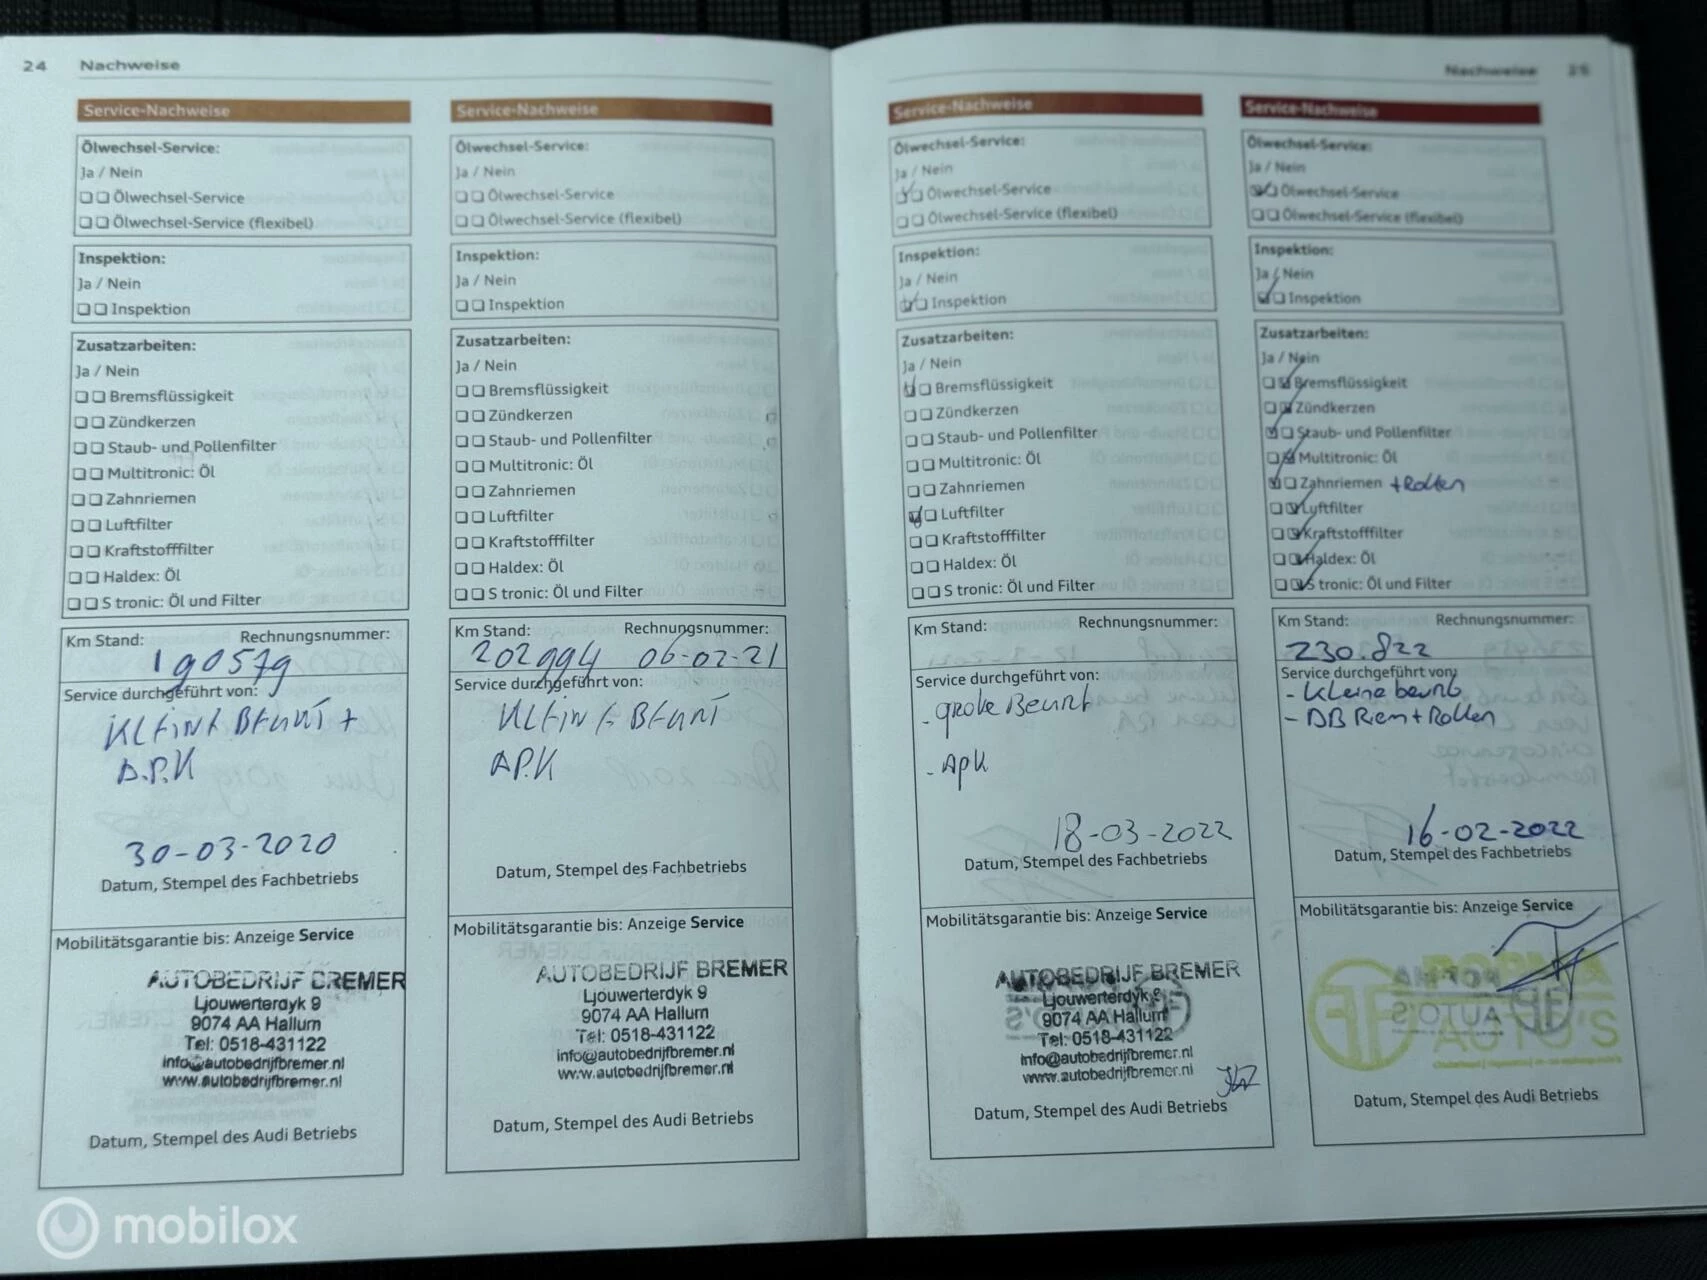 24 Nachweise
Service-Nachweise
Ölwechsel-Service:
Ja / Nein
Ölwechsel-Service
Ölwechsel-Service (flexibel)
Inspektion:
Ja / Nein
Inspektion
Zusatzarbeiten:
Ja / Nein
Bremsflüssigkeit
Zündkerzen
Staub- und Pollenfilter
Multitronic: Öl
Zahnriemen
Luftfilter
Kraftstofffilter
Haldex: Öl
S tronic: Öl und Filter
Km Stand: Rechnungsnummer:
190579
Service durchgeführt von:
KLEINE BEURT +
A.P.K
30-03-2020
Datum, Stempel des Fachbetriebs
Mobilitätsgarantie bis: Anzeige Service
AUTOBEDRIJF BREMER
Ljouwerterdyk 9
9074 AA Hallum
Tel: 0518-431122
info@autobedrijfbremer.nl
www.autobedrijfbremer.nl
Datum, Stempel des Audi Betriebs
Service-Nachweise
Ölwechsel-Service:
Ja / Nein
Ölwechsel-Service
Ölwechsel-Service (flexibel)
Inspektion:
Ja / Nein
Inspektion
Zusatzarbeiten:
Ja / Nein
Bremsflüssigkeit
Zündkerzen
Staub- und Pollenfilter
Multitronic: Öl
Zahnriemen
Luftfilter
Kraftstofffilter
Haldex: Öl
S tronic: Öl und Filter
Km Stand: Rechnungsnummer:
202994 06-02-21
Service durchgeführt von:
KLEINE BEURT
APK
Datum, Stempel des Fachbetriebs
Mobilitätsgarantie bis: Anzeige Service
AUTOBEDRIJF BREMER
Ljouwerterdyk 9
9074 AA Hallum
Tel: 0518-431122
info@autobedrijfbremer.nl
www.autobedrijfbremer.nl
Datum, Stempel des Audi Betriebs
Nachweise 25
Service-Nachweise
Ölwechsel-Service:
Ja / Nein
Ölwechsel-Service
Ölwechsel-Service (flexibel)
Inspektion:
Ja / Nein
Inspektion
Zusatzarbeiten:
Ja / Nein
Bremsflüssigkeit
Zündkerzen
Staub- und Pollenfilter
Multitronic: Öl
Zahnriemen
Luftfilter
Kraftstofffilter
Haldex: Öl
S tronic: Öl und Filter
Km Stand: Rechnungsnummer:
Service durchgeführt von:
- grote Beurt
- Apk
18-03-2022
Datum, Stempel des Fachbetriebs
Mobilitätsgarantie bis: Anzeige Service
AUTOBEDRIJF BREMER
Ljouwerterdyk 9
9074 AA Hallum
Tel: 0518-431122
info@autobedrijfbremer.nl
www.autobedrijfbremer.nl
Datum, Stempel des Audi Betriebs
Service-Nachweise
Ölwechsel-Service:
Ja / Nein
Ölwechsel-Service
Ölwechsel-Service (flexibel)
Inspektion:
Ja / Nein
Inspektion
Zusatzarbeiten:
Ja / Nein
Bremsflüssigkeit
Zündkerzen
Staub- und Pollenfilter
Multitronic: Öl
Zahnriemen + Rollen
Luftfilter
Kraftstofffilter
Haldex: Öl
S tronic: Öl und Filter
Km Stand: Rechnungsnummer:
230.822
Service durchgeführt von:
- Kleine beurt
- DB Riem + Rollen
16-02-2022
Datum, Stempel des Fachbetriebs
Mobilitätsgarantie bis: Anzeige Service
AUTO'S
Datum, Stempel des Audi Betriebs
mobilox